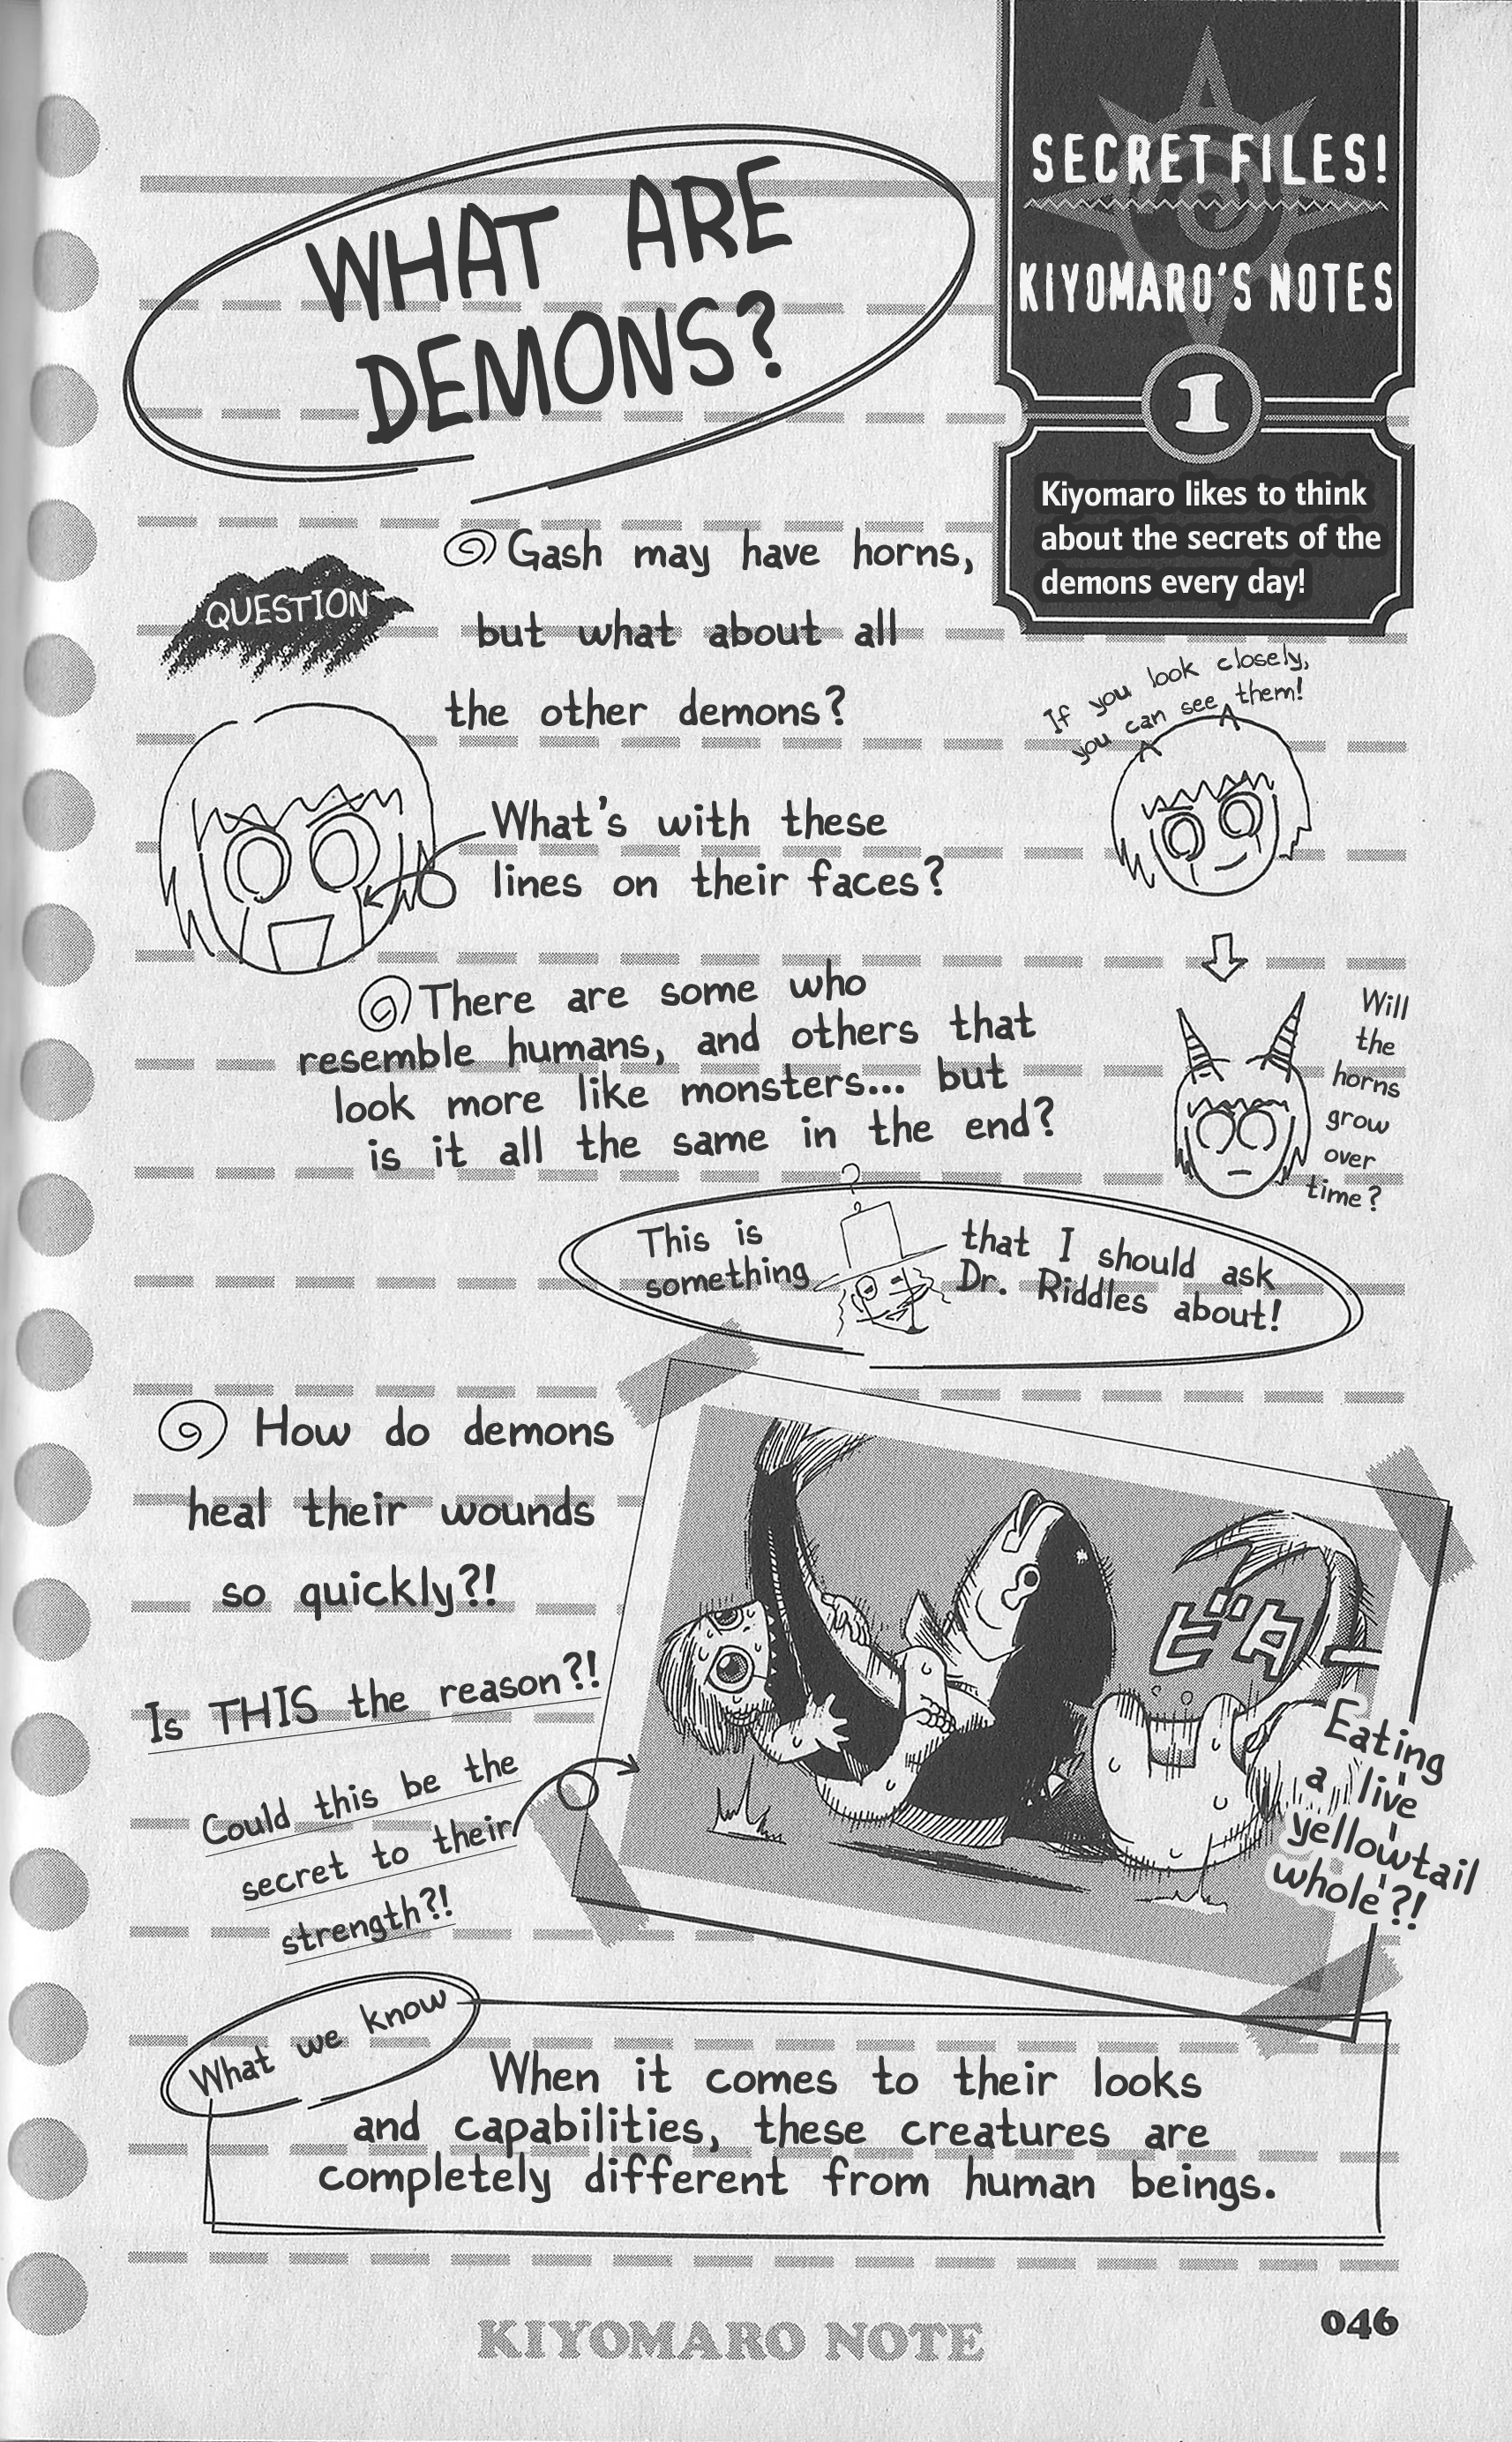 SECRET FILES!
KIYOMARO'S NOTES
1
Kiyomaro likes to think
about the secrets of the
demons every day!
WHAT ARE
DEMONS?
QUESTION
Gash may have horns,
but what about all
the other demons?
If you look closely,
you can see them!
What's with these
lines on their faces?
Will
the
horns
grow
over
time?
There are some who
resemble humans, and others that
look more like monsters... but
is it all the same in the end?
This is
something
that I should ask
Dr. Riddles about!
?
How do demons
heal their wounds
so quickly?!
Is THIS the reason?!
Could this be the
secret to their
strength?!
ビターー
Eating
a live
yellowtail
whole?!
What we know
When it comes to their looks
and capabilities, these creatures are
completely different from human beings.
KIYOMARO NOTE
046